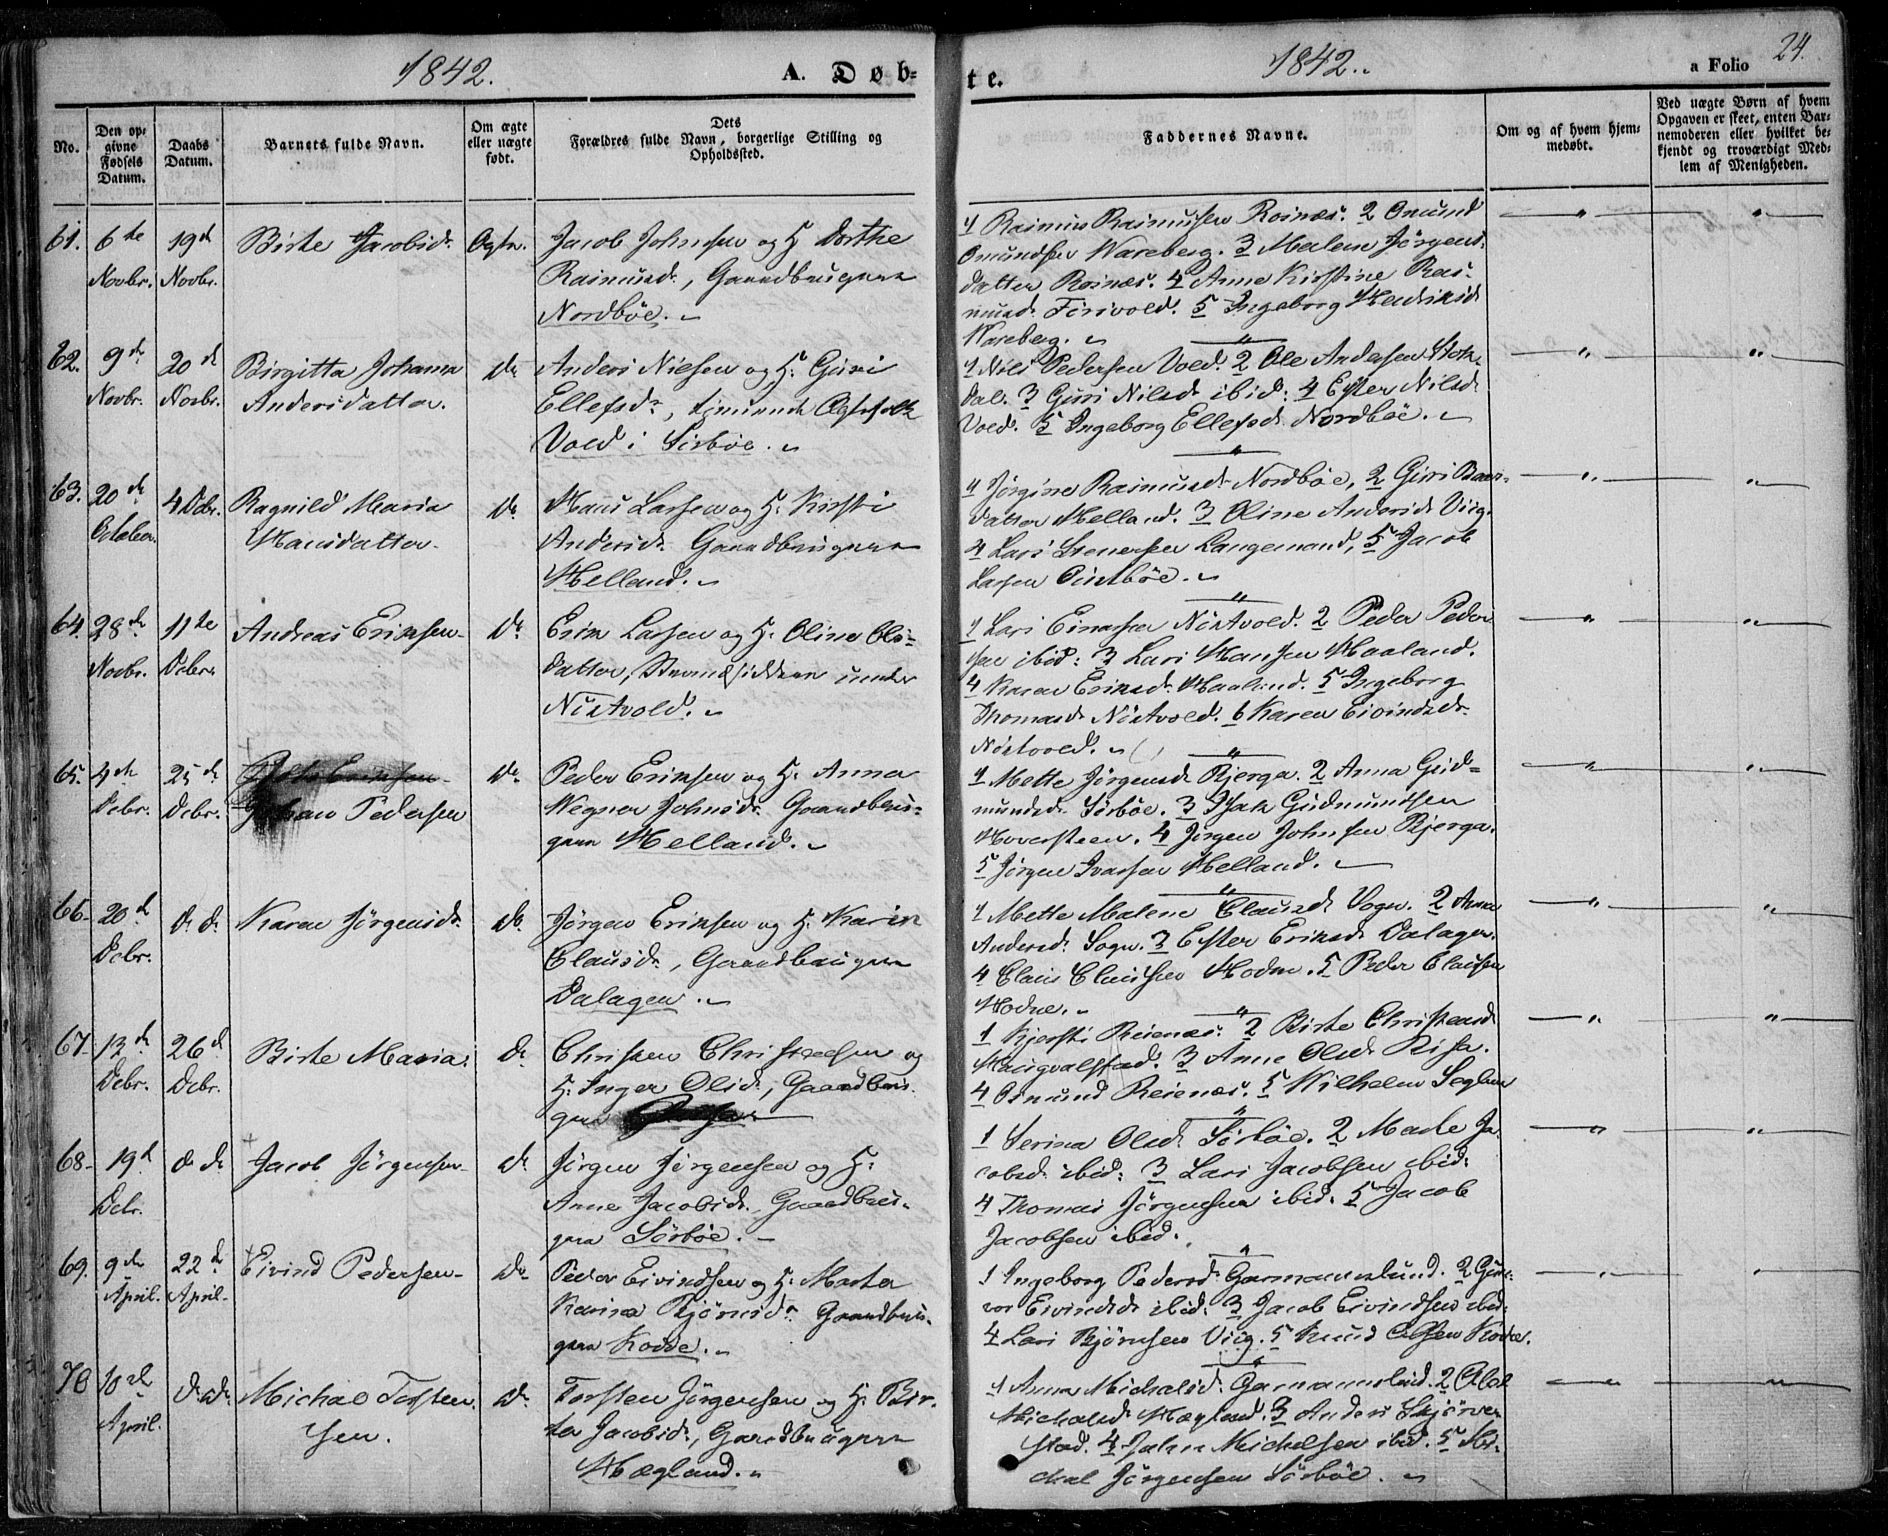 1842.
A. Døb=
te.
1842.
a Folio 24.
No.
Den op=
givne
Fødsels
Datum.
Daabs
Datum.
Barnets fulde Navn.
Om ægte
eller uægte
født.
Dets
Forældres fulde Navn, borgerlige Stilling og
Opholdssted.
Faddernes Navne.
Om og af hvem hjem=
medøbt.
Ved uægte Børn af hvem
Opgaven er skeet, enten Bar=
nemoderen eller hvilket be=
kjendt og troværdigt Med=
lem af Menigheden.
61. 6te
Novbr.
19d
Novbr.
Birte Jacobsd.
Ægte.
Jacob Johnsen og H. Dorthe
Rasmusd., Gaardbrugere
Nordbøe.
1 Rasmus Rasmussen Rosnæs. 2 Omund
Omundsen Wareberg. 3 Malene Jørgens
datter Rosnæs. 4 Anne Kirstine Ras-
musd. 5 Ingeborg Hendriksd.
Wareberg.
62. 9de
Novbr.
20d
Novbr.
Birgitta Johanna
Andersdatter.
Do
Anders Nielsen og H. Guri
Ellefsd., Ægtefolk
Vold i Sørbøe.
1 Nils Pedersen Vold. 2 Ole Andersen Stok-
dal. 3 Guri Nilsd. ibid: 4 Ester Nilsd.
Vold. 5 Ingeborg Ellefsd. Nordbøe.
63. 20de
October.
4 Dcbr.
Ragnild Maria
Hansdatter.
Do
Hans Larsen og H. Kirsti
Andersd. Gaardbrugere
Helland.
1 Jørgine Rasmusd. Nordbøe, 2 Guri
datter Helland. 3 Oline Andersd. Viig.
4 Lars Stenersen Langemand, 5 Jacob
Larsen
64. 28de
Novbr.
11te
Dcbr.
Andreas Eriksen
Do
Erik Larsen og H. Oline Ols-
datter, Strandsiddere under
Nistvold.
1 Lars Einarsen Nistvold. 2 Peder Peder
sen ibid: 3 Lars Hansen Haaland.
4 Karen Eriksd. Haaland. 5 Ingeborg
Thomasd. Nistvold. 6 Karen Eivindsd.
Nistvold.
65. 4de
Dcbr.
25de
Dcbr.
Johan Pedersen
Do
Peder Eriksen og H. Anna
Wegner Johnsd. Gaardbru-
gere Helland.
1 Mette Jørgensd. Bjerga. 2 Anna Gud-
mundsd. Sørbøe. 3 Isak Gudmundsen
Hoversteen. 4 Jørgen Johnsen Bjerga.
5 Jørgen Ivarsen Helland.
66. 20d
Dcbr.
do do
Karen Jørgensd.
Do
Jørgen Eriksen og H. Karen
Clausd., Gaardbrugere
Dalagen.
1 Mette Malene Clausd. Vogn. 2 Anna
Andersd. Sogn. 3 Ester Eriksd. Dalagen.
4 Claus Claussen Hodne. 5 Peder Claussen
Hodne.
67. 13de
Dcbr.
26d
Dcbr.
Birte Maria.
do
Christen Christensen og
H. Inger Olsd., Gaardbru-
gere
1 Kjersti Reienæs. 2 Birte Christensd.
Haugvalstad. 3 Anne Olsd. Risa.
4 Osmund Reienæs. 5 Wilhelm Seglem
68. 19d
Dcbr.
do do
Jacob Jørgensen
do
Jørgen Jørgensen og H.
Anne Jacobsd., Gaardbru-
gere Sørbøe.
1 Serina Olsd. Sørbøe. 2 Marte Ja-
cobsd. ibid: 3 Lars Jacobsen ibid:
4 Thomas Jørgensen ibid. 5 Jacob
Jacobsen ibid.
69. 9de
April.
22d
April.
Eivind Pedersen
Do
Peder Eivindsen og H. Marta
Karina Bjørnsd. Gaardbru-
gere Kodde.
1 Ingeborg Pedersd. Garmannslund. 2 Gun-
vor Eivindsd. ibid: 3 Jacob Eivindsen ibid:
4 Lars Bjørnsen Viig. 5 Knud Olsen
70 10de
April.
do do
Michael Torsten
sen.
do
Torsten Jørgensen og H. Bir-
te Jacobsd., Gaardbrugere
Hægland.
1 Anna Michelsd. Garmannslund. 2
Michelsd. Hægland. 3 Anders Skjørve-
stad. 4 John Michelsen ibid. 5 Mi-
chal Jørgensen Sørbøe.